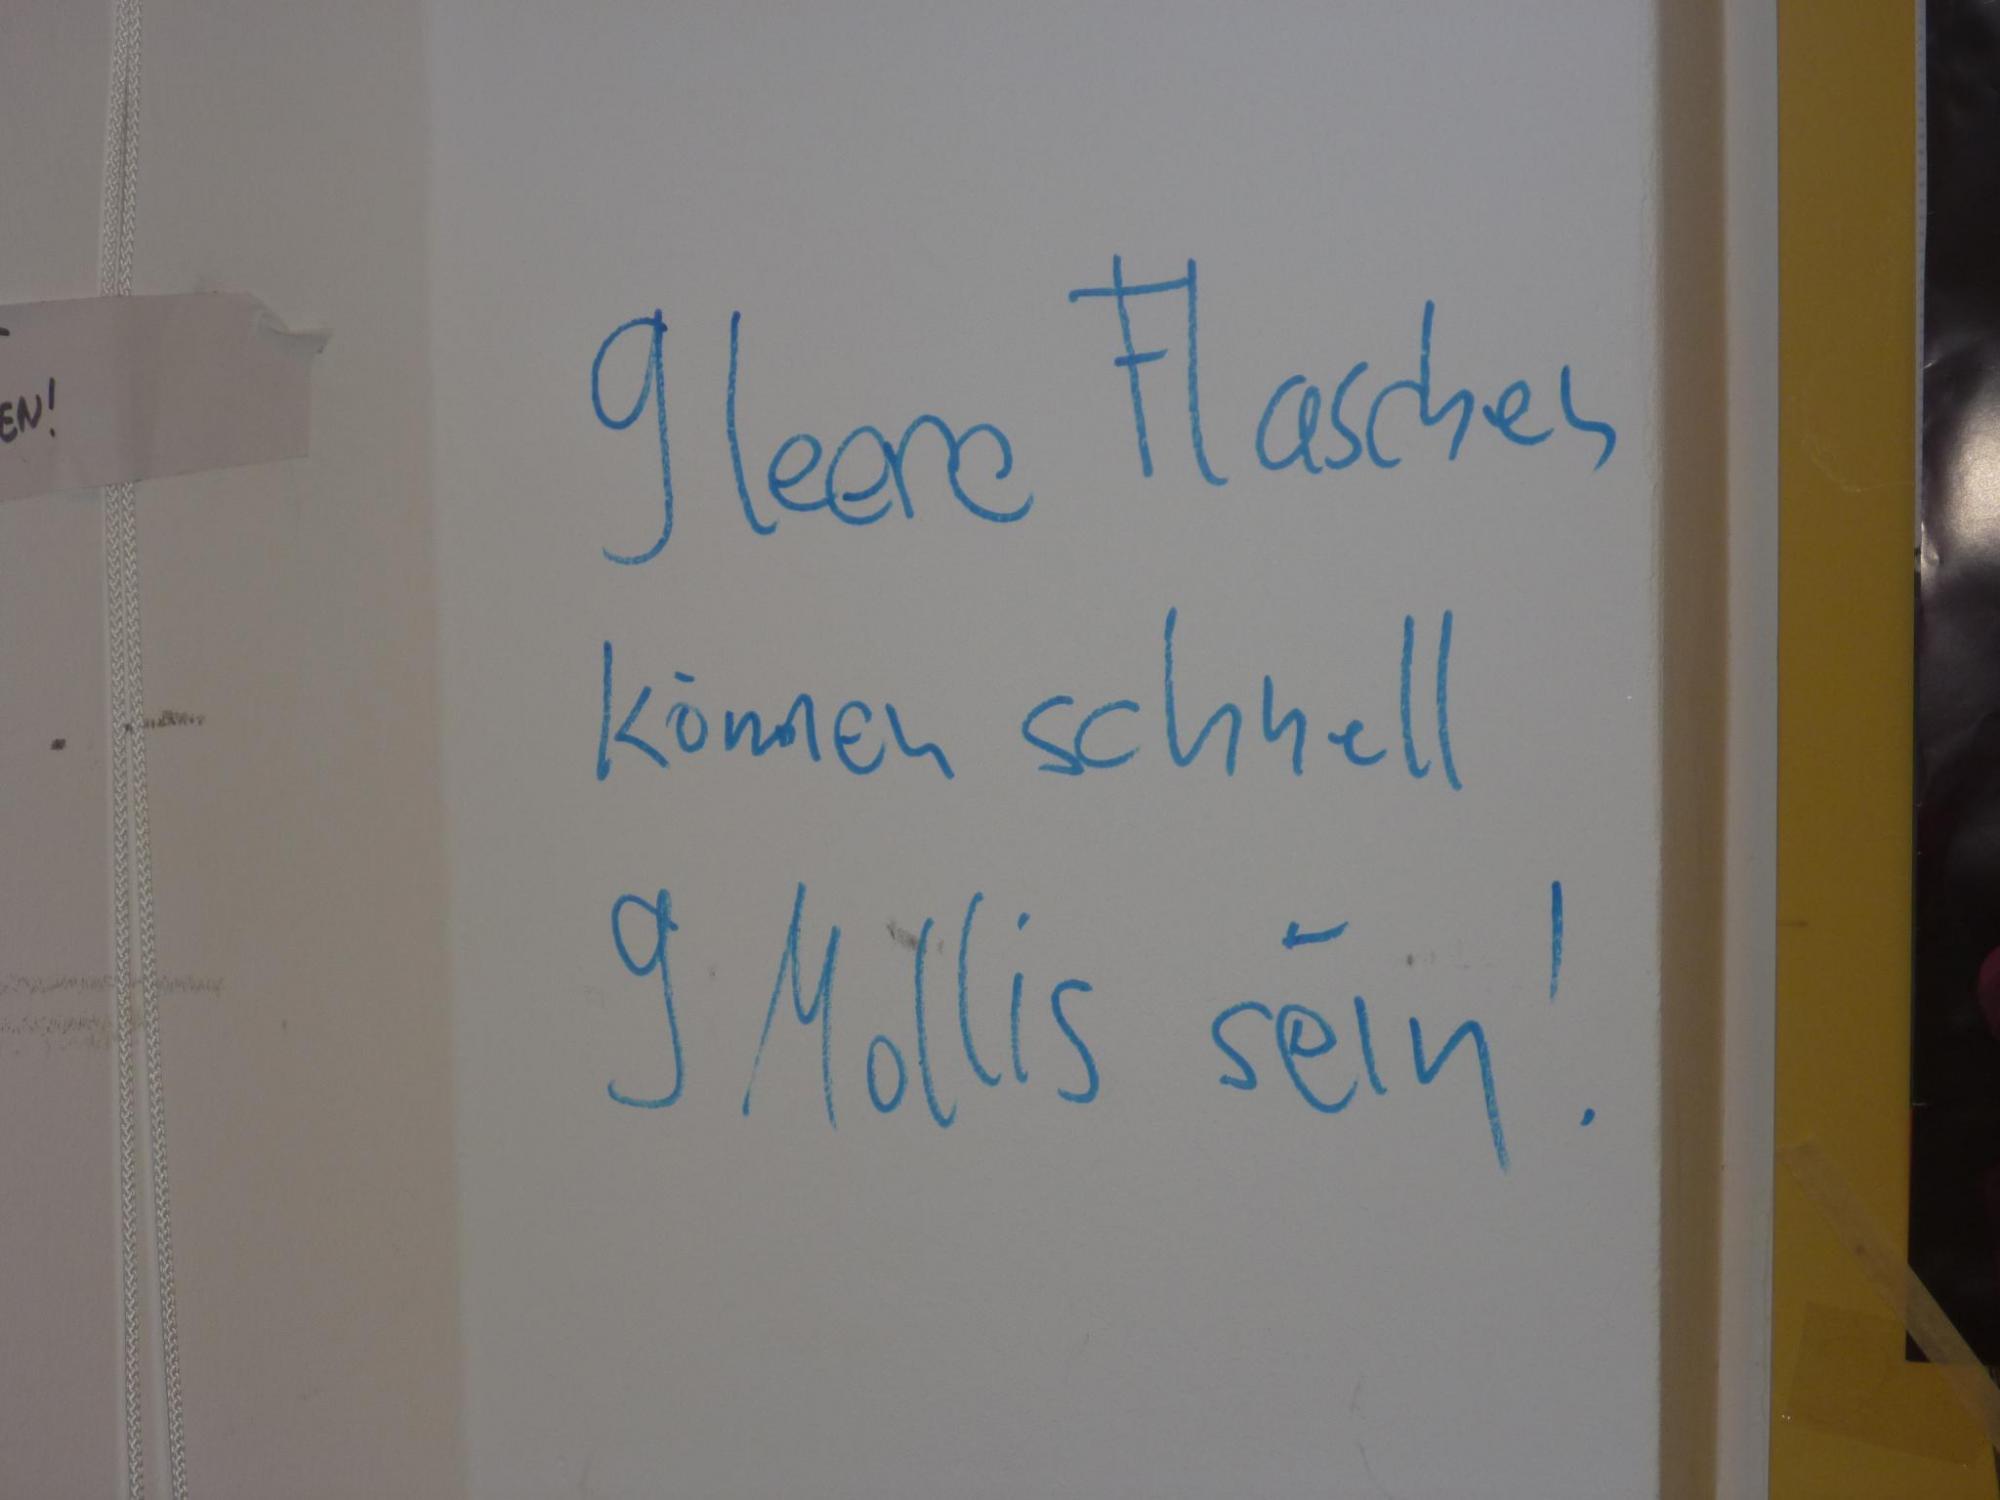 EN!
9 leere Flaschen
können schnell
9 Mollis sein!